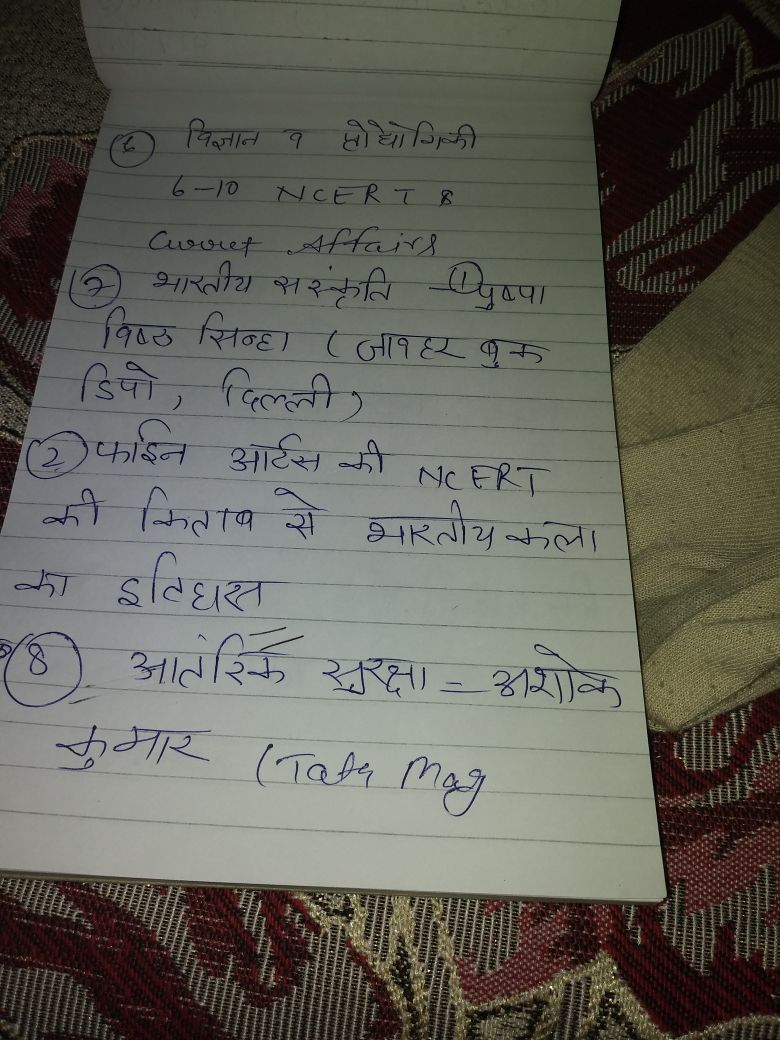 (6) विज्ञान व प्रोद्योगिकी
6-10 NCERT &
Affairs
(7) भारतीय संस्कृति - (1) पुष्पा
विष्ठ सिन्हा (जावहर बुक
डिपो, दिल्ली)
(2) फाईन आर्टस की NCERT
की किताब से भारतीय कला
का इतिहास
(8) आतंरिक सुरक्षा = अशोक
कुमार (Tata Mag